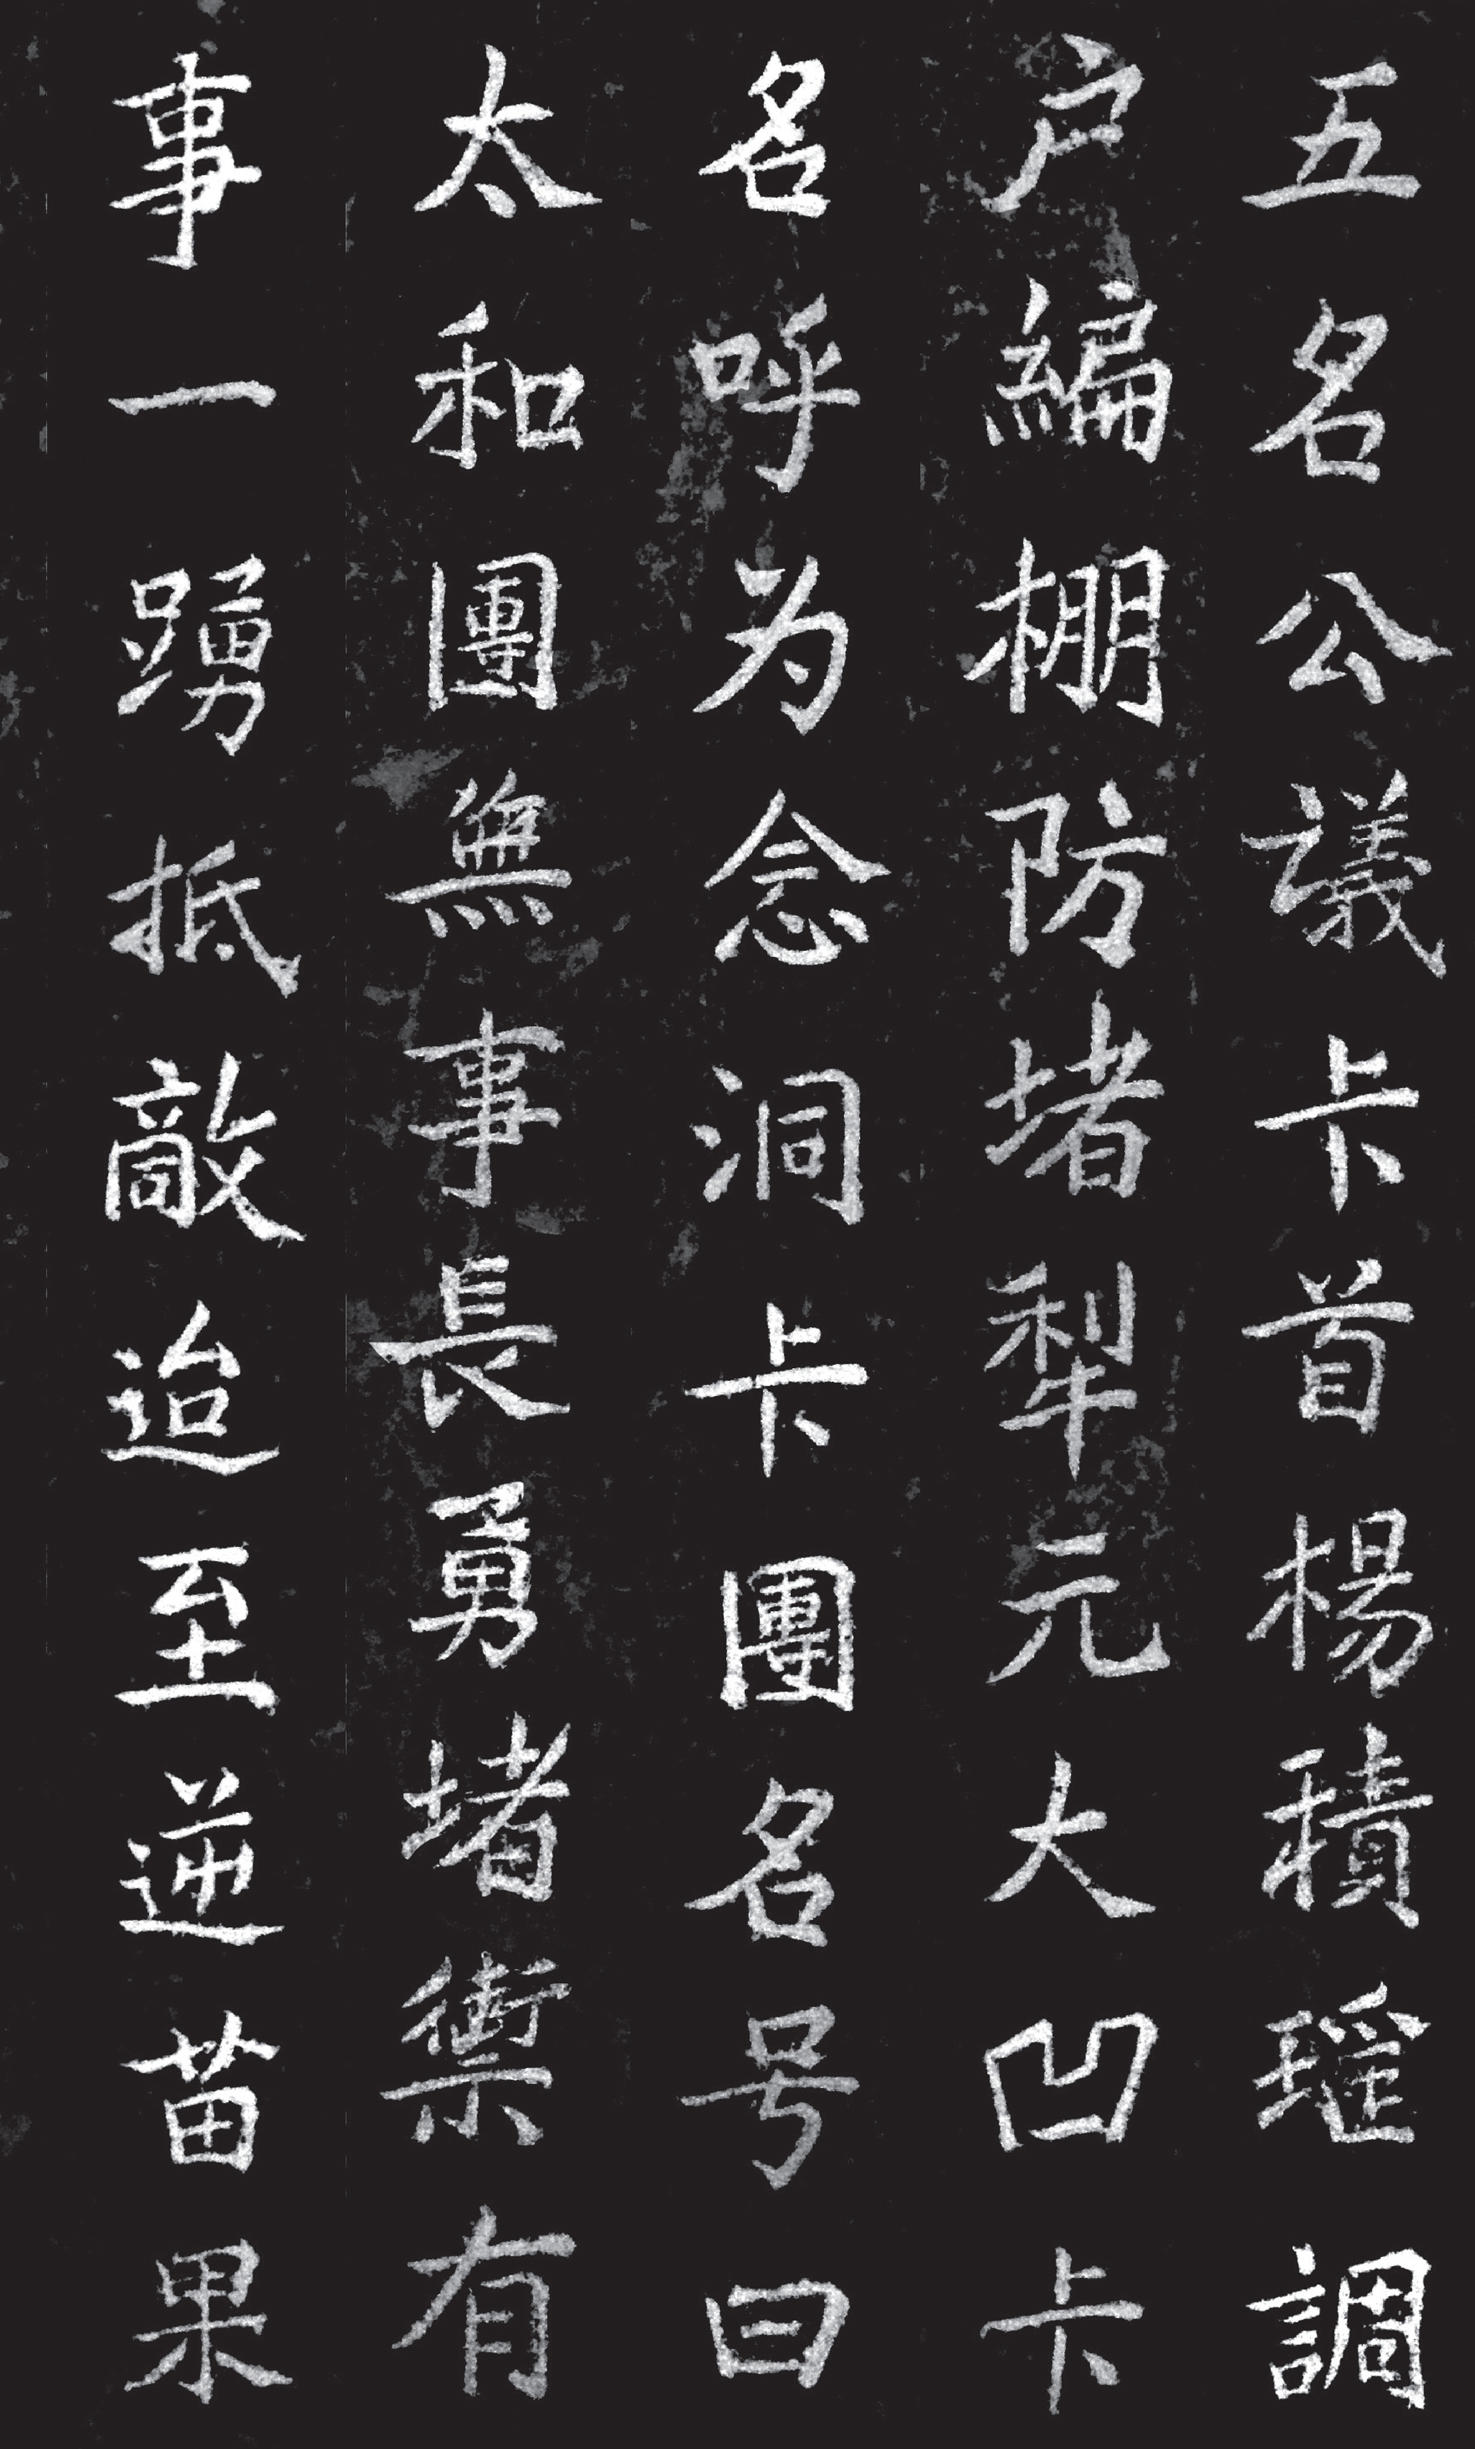 五名公議卡首楊積瑶調
户編棚防堵犁元大凹卡
名呼为念洞卡團名号曰
太和團無事長勇堵禦有
事一踴抵敵迨至逆苗果